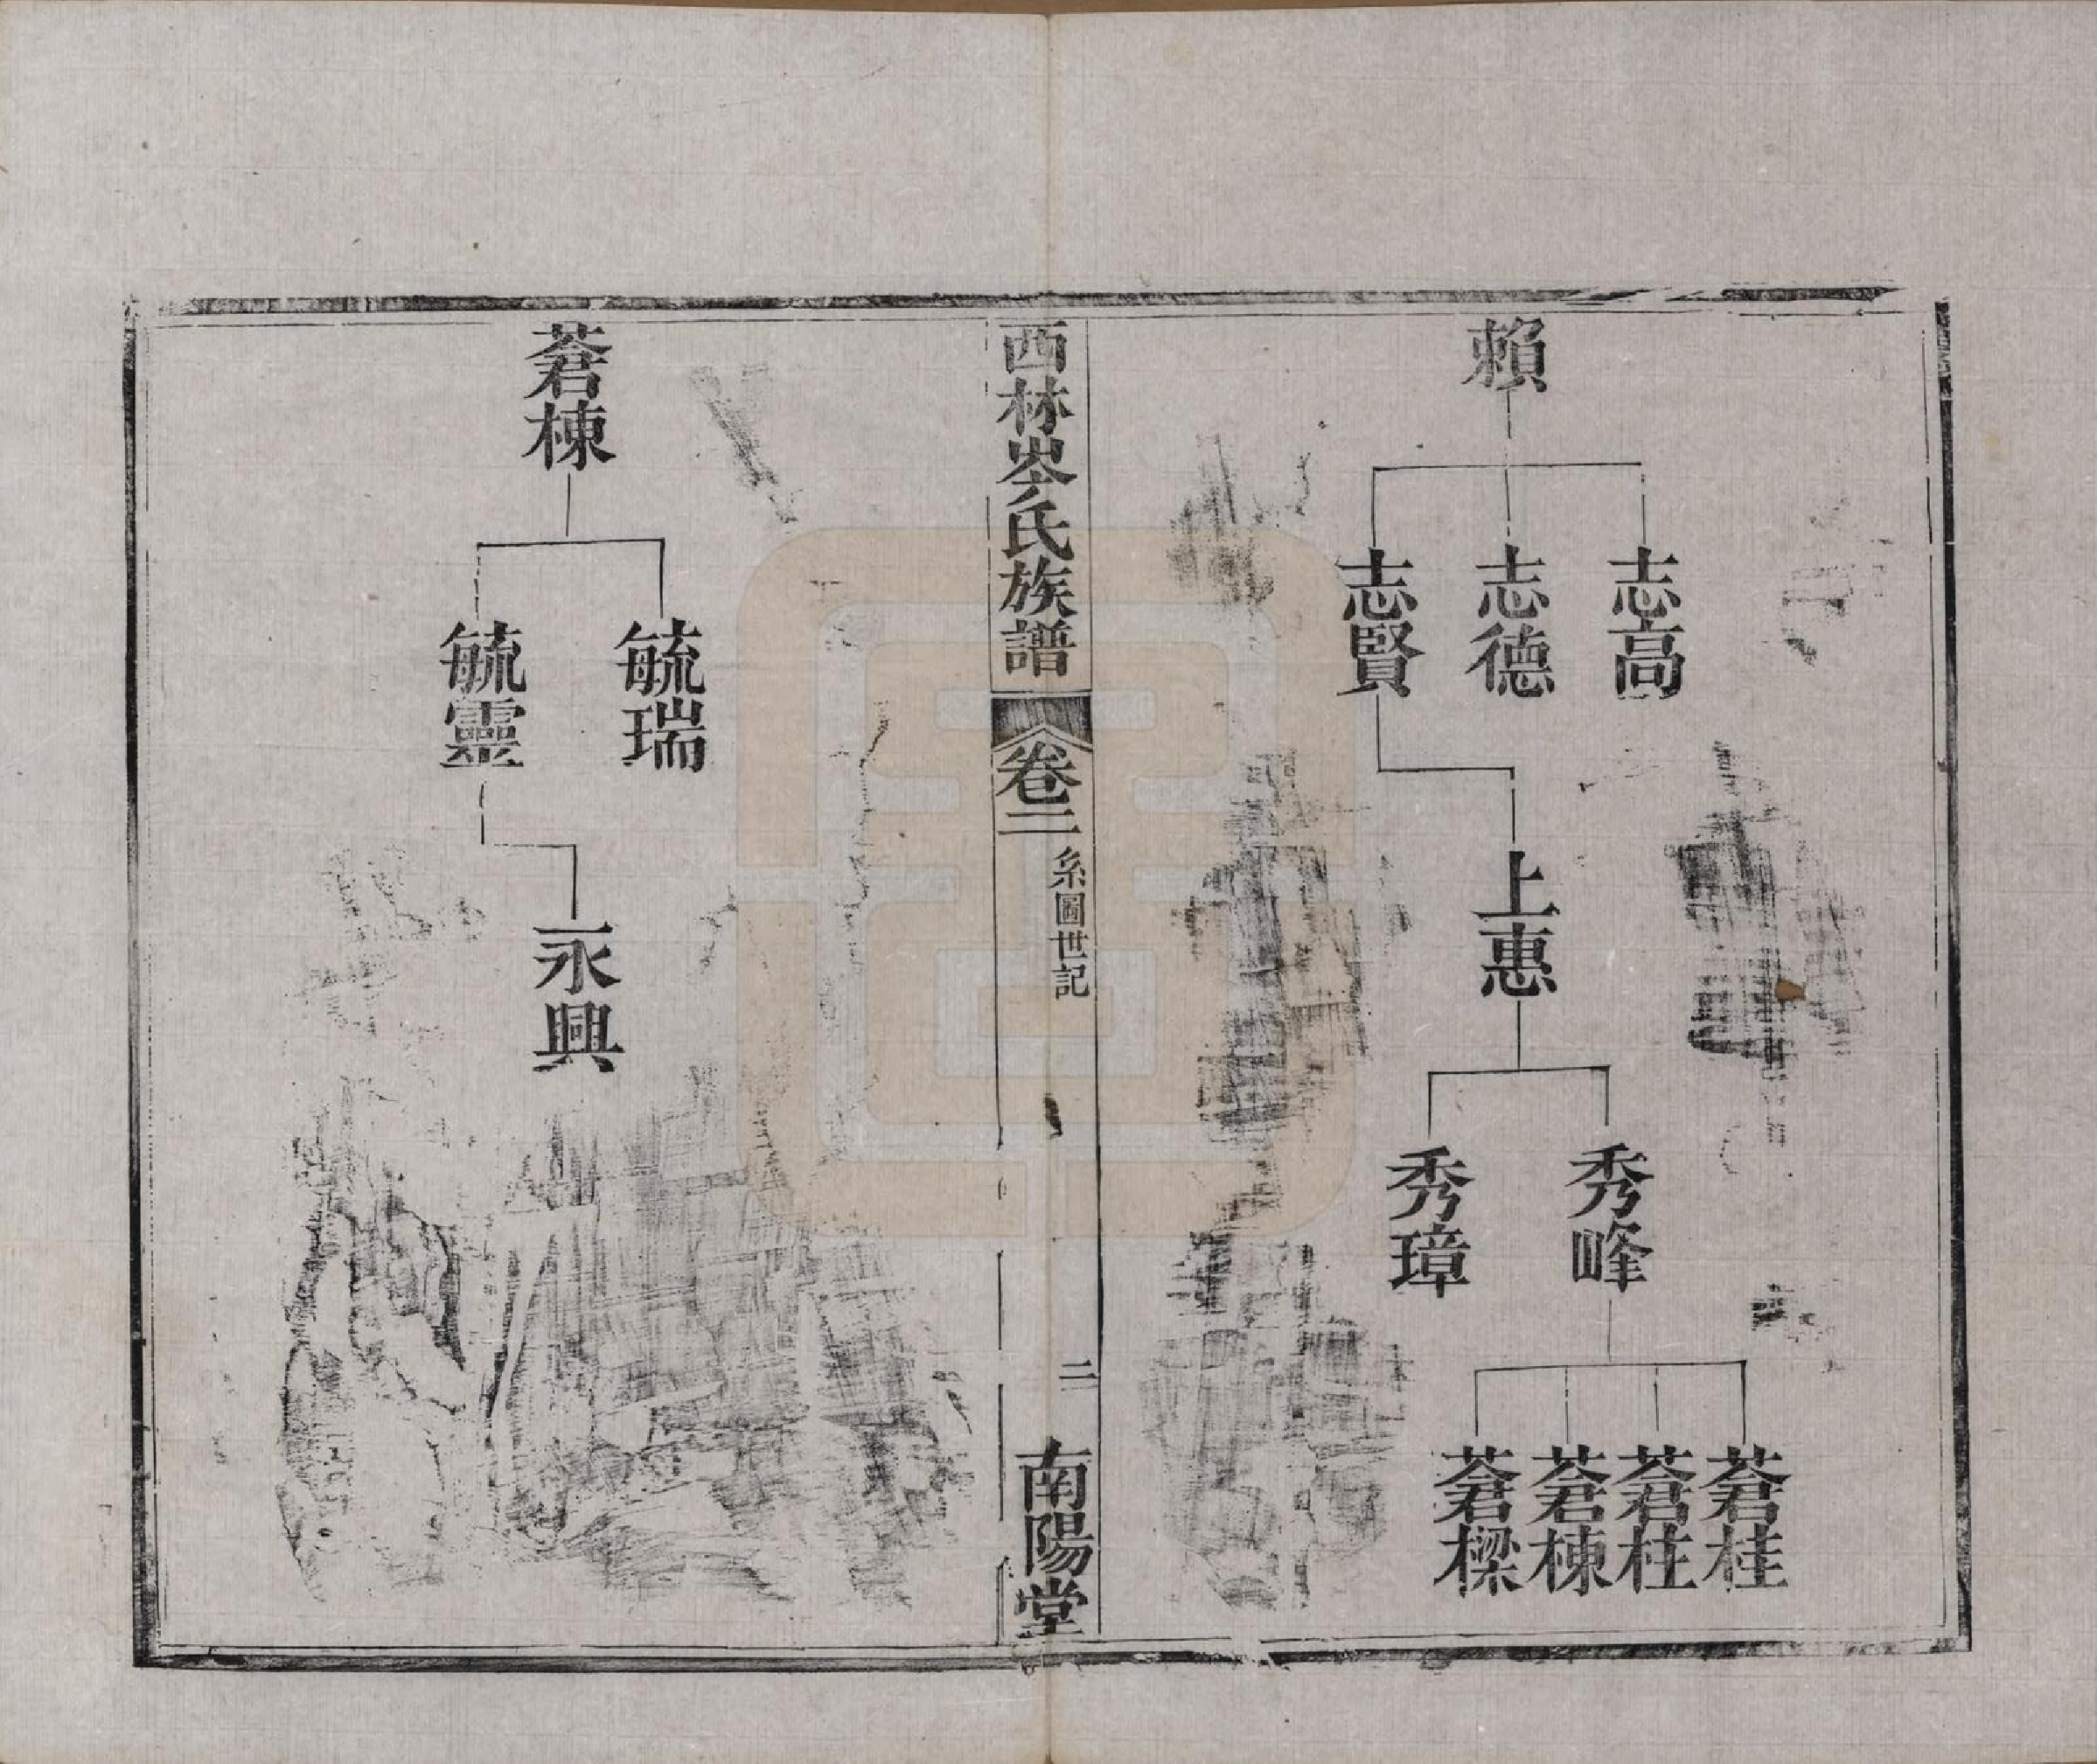 賴
志高
志德
志賢
上惠
秀峰
秀璋
蒼桂
蒼柱
蒼棟
蒼樑
西林岑氏族譜
卷二
系圖世記
二
南陽堂
蒼棟
毓瑞
毓靈
永興